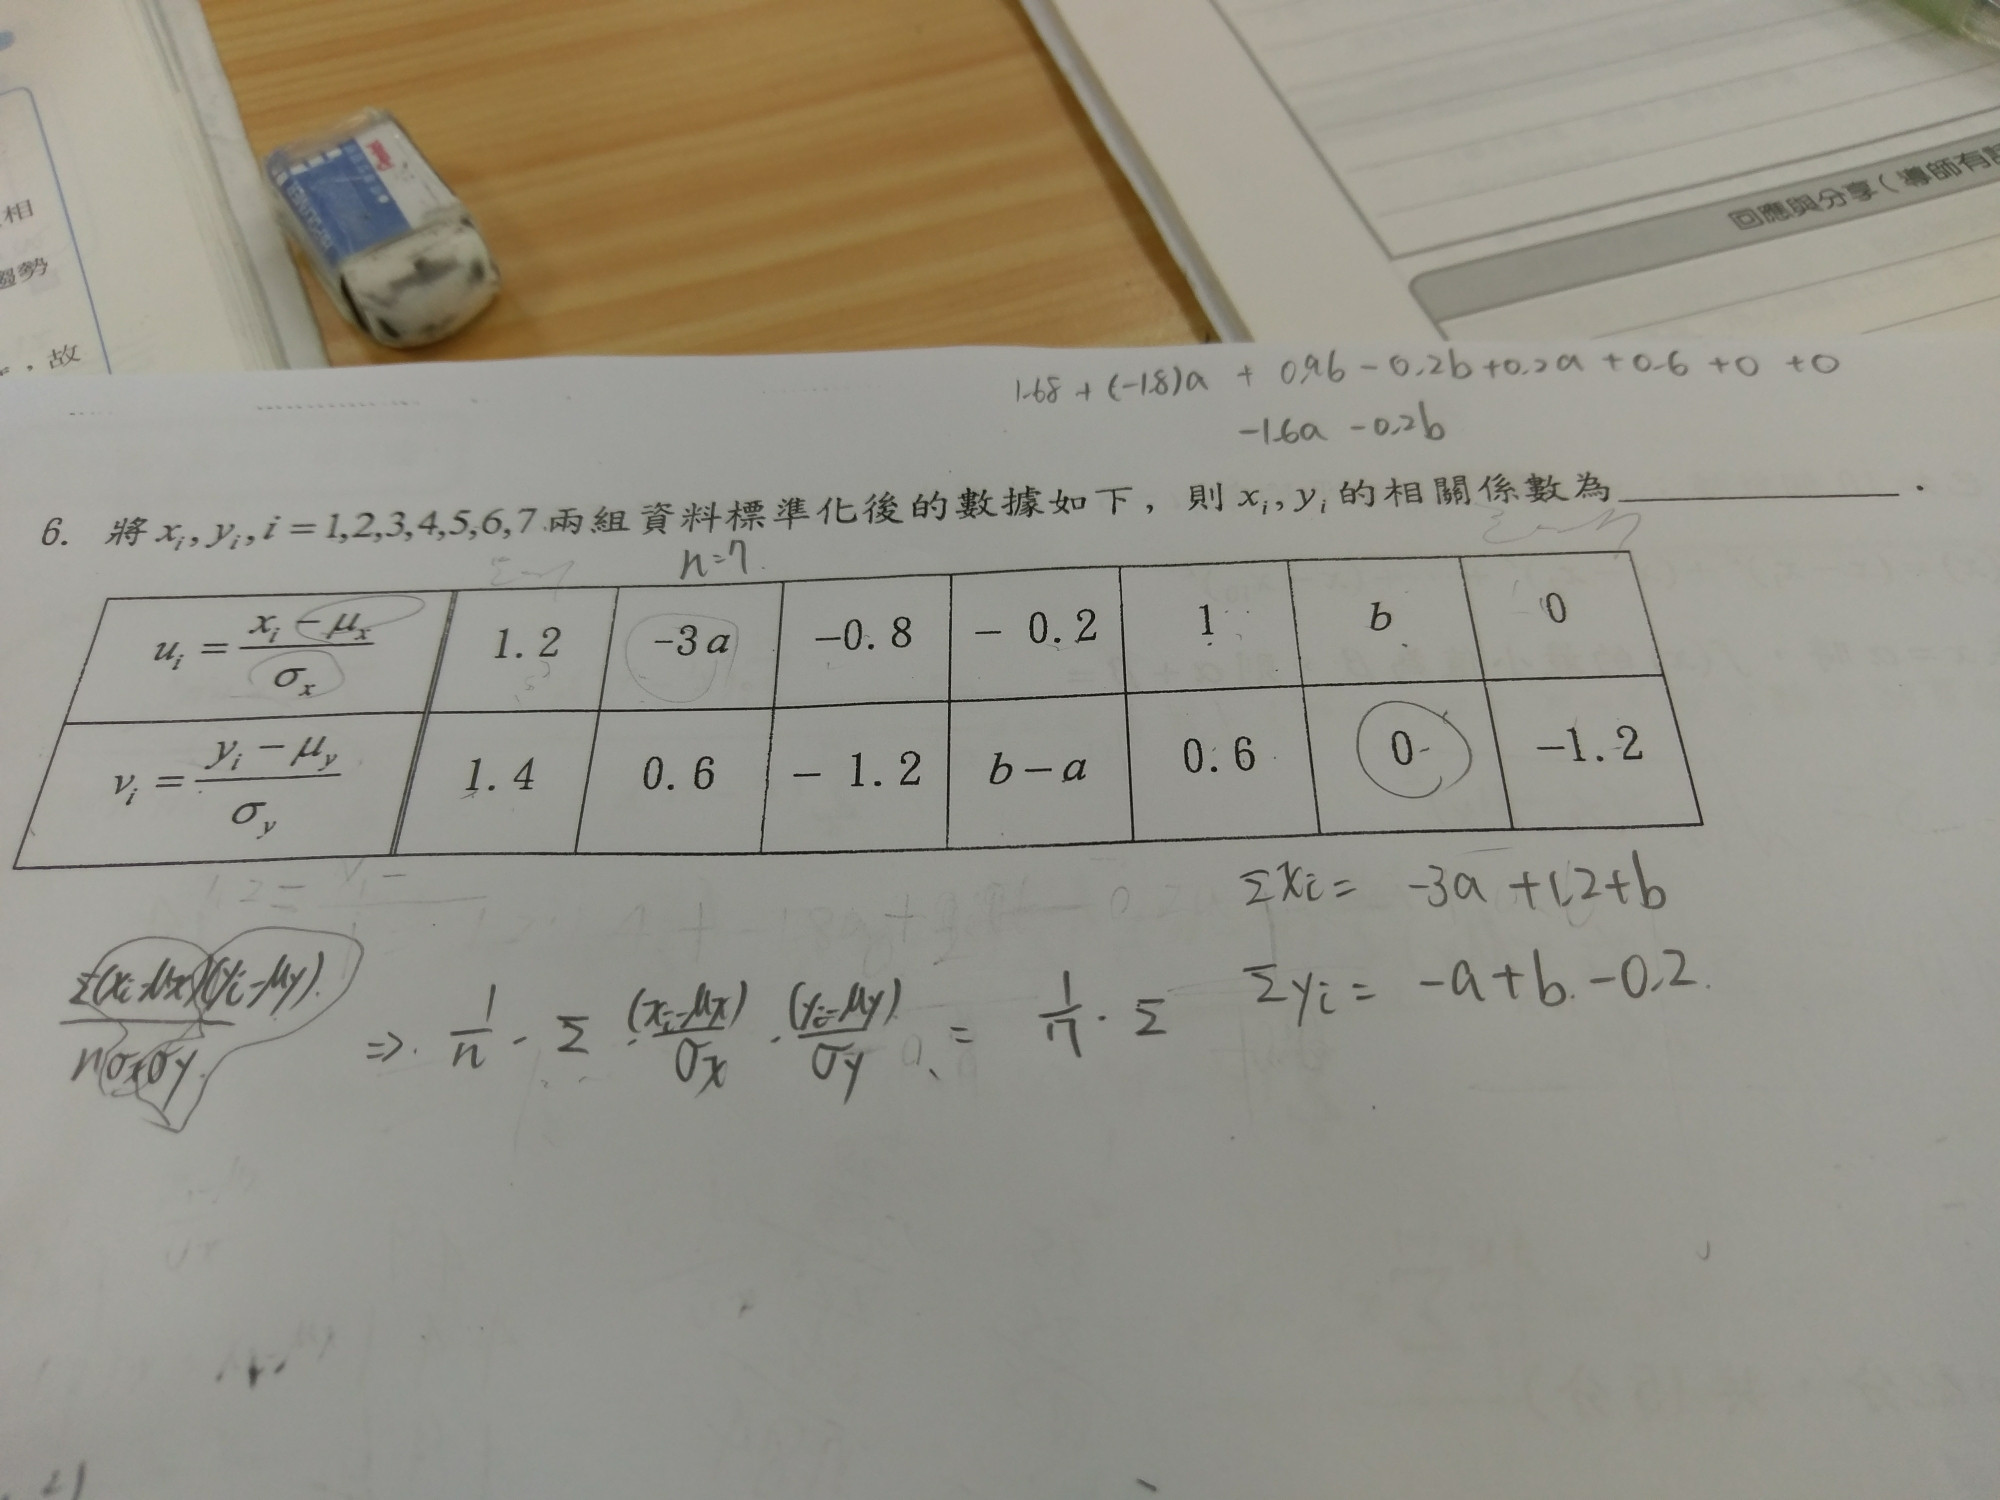 相
趨勢
,故
回應與分享(導師有
1.68 + (-1.8)a + 0.96 - 0.2b + 0.2a + 0.6 + 0 + 0
-1.6a - 0.2b
6. 將 xᵢ, yᵢ, i = 1,2,3,4,5,6,7 兩組資料標準化後的數據如下,則 xᵢ, yᵢ 的相關係數為 ________ .
n=7
uᵢ = (xᵢ - μₓ)/σₓ 1.2 -3a -0.8 - 0.2 1 b 0
vᵢ = (yᵢ - μᵧ)/σᵧ 1.4 0.6 - 1.2 b-a 0.6 0 -1.2
Σxi = -3a + 1.2 + b
Σyi = -a + b - 0.2
Σ(xi-μx)(yi-μy) / nσxσy ⇒ 1/n · Σ (xi-μx)/σx · (yi-μy)/σy = 1/7 · Σ